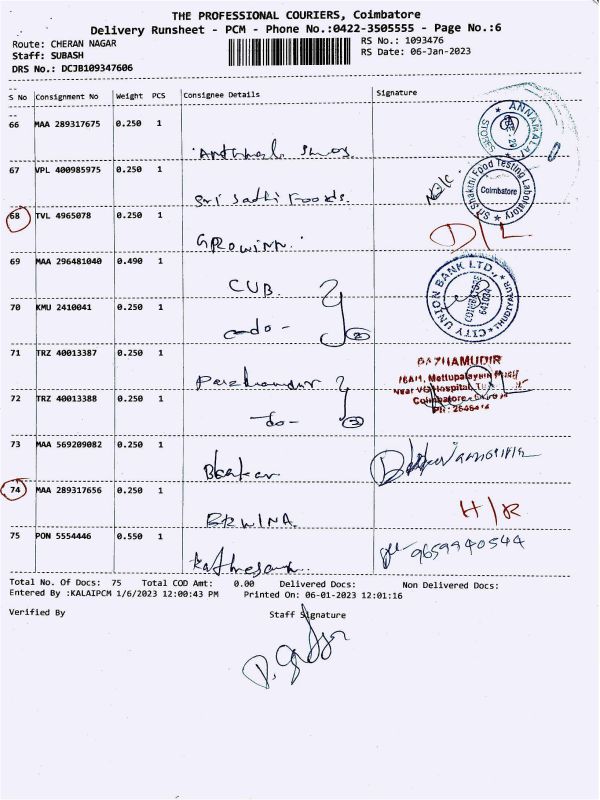 THE PROFESSIONAL COURIERS, Coimbatore
Delivery Runsheet - PCM - Phone No.:0422-3505555 - Page No.:6
Route: CHERAN NAGAR
Staff: SUBASH
DRS No.: DCJB109347606
RS No.: 1093476
RS Date: 06-Jan-2023
S No Consignment No Weight PCS Consignee Details Signature
66 MAA 289317675 0.250 1
ANNAMALAI STORES
67 VPL 400985975 0.250 1
Sri Sadhi Foods.
Sri Shakini Food Testing Laboratory
Coimbatore
68 TVL 4965078 0.250 1
GROWINN.
D/L
69 MAA 296481040 0.490 1
CUB.
CITY UNION BANK LTD., THUDIYALUR
COIMBATORE
641034
70 KMU 2410041 0.250 1
-do- 2
71 TRZ 40013387 0.250 1
PAZHAMUDIR
Near VG Hospital,
Coimbatore
72 TRZ 40013388 0.250 1
-do- 3
73 MAA 569209082 0.250 1
74 MAA 289317656 0.250 1
ERWINA
H/R
75 PON 5554446 0.550 1
9659940544
Total No. Of Docs: 75 Total COD Amt: 0.00 Delivered Docs: Non Delivered Docs:
Entered By :KALAIPCM 1/6/2023 12:00:43 PM Printed On: 06-01-2023 12:01:16
Verified By Staff Signature